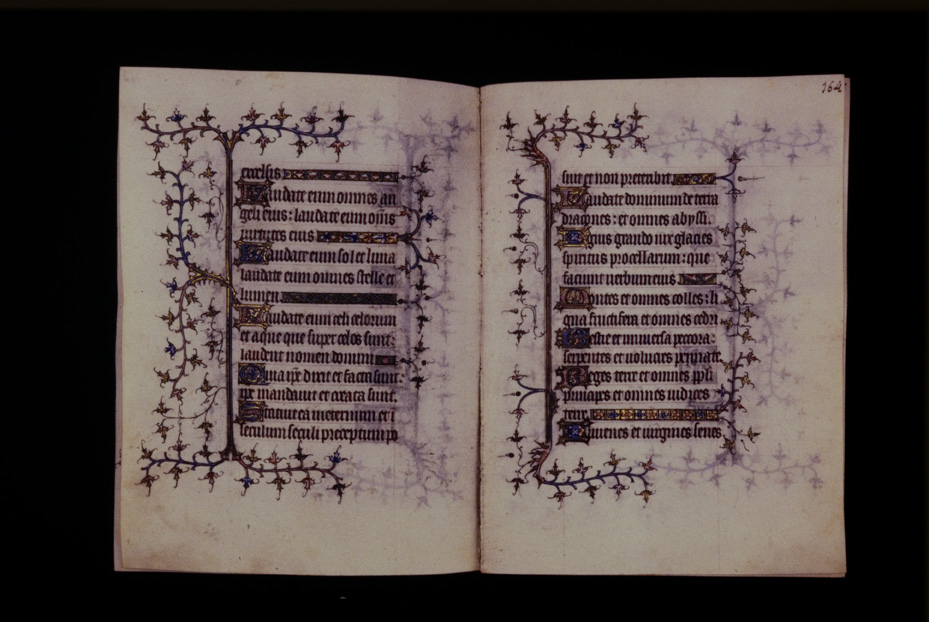 excelsis
Laudate eum omnes an
geli eius: laudate eum oms
uirtutes eius
Laudate eum sol et luna
laudate eum omnes stelle et
lumen
Laudate eum celi celorum
et aque que super celos sunt:
laudent nomen domini
Quia ipe dixit et facta sunt:
ipe mandauit et creata sunt.
Statuit ea ineternum et in
seculum seculi preceptum po
164
suit et non preteribit.
Laudate dominum de terra
dracones: et omnes abyssi.
Ignis grando nix glacies
spiritus procellarum: que
faciunt uerbum eius
Montes et omnes colles: li
gna fructifera et omnes cedri
Bestie et uniuersa pecora:
serpentes et uolucres pennate.
Reges terre et omnes ppli
principes et omnes iudices
terre
Iuuenes et uirgines senes